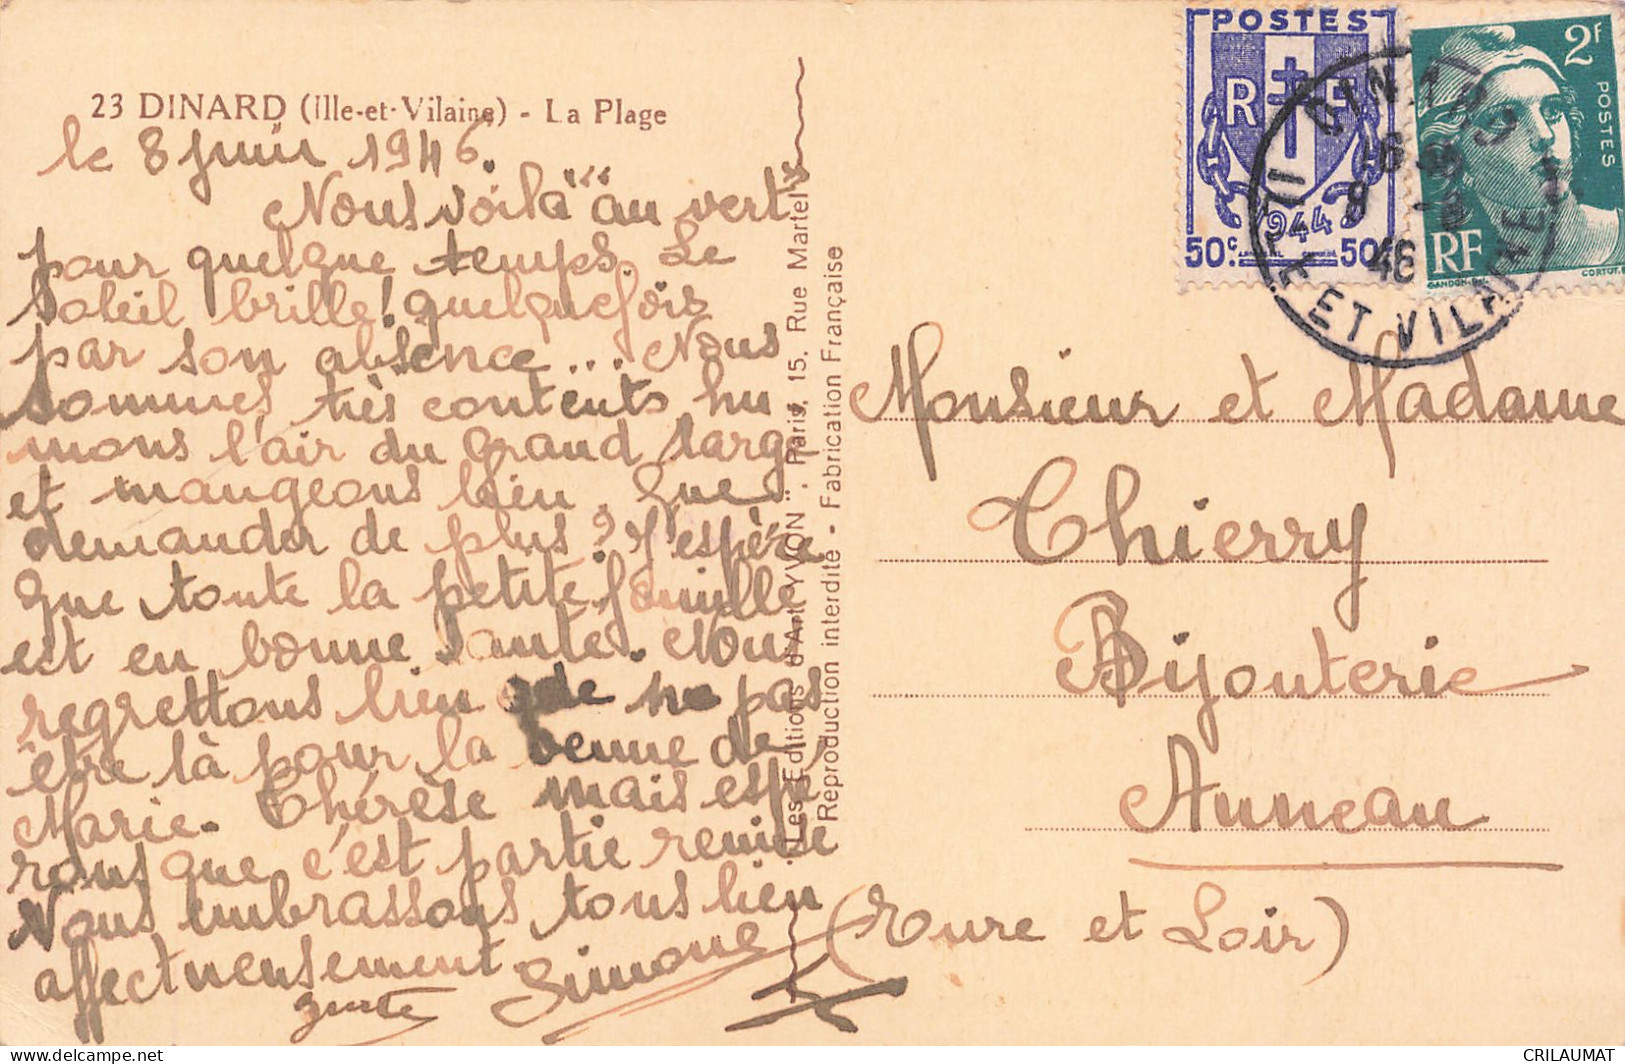 23 DINARD (Ille-et-Vilaine) - La Plage
le 8 juin 1946.
Nous voilà "au vert"
pour quelque temps. Le
soleil brille! quelquefois
par son absence... Nous
sommes très contents hu
mons l'air du grand large
et mangeons bien. Que
demander de plus? J'espère
que toute la petite famille
est en bonne santé. Nous
regrettons bien de ne pas
être là pour la venue de
Marie-Thérèse mais espé
rons que c'est partie remise
Nous embrassons tous bien
affectueusement
Simone
"Les Editions d'Art YVON", Paris, 15, Rue Martel
Reproduction interdite - Fabrication Française
POSTES
RF
1944
50c. 50c.
2F
POSTES
RF
GANDON
CORTOT
DINARD
16
8
46
ILLE ET VILAINE
Monsieur et Madame
Thierry
Bijouterie
Auneau
(Eure et Loir)
CRILAUMAT